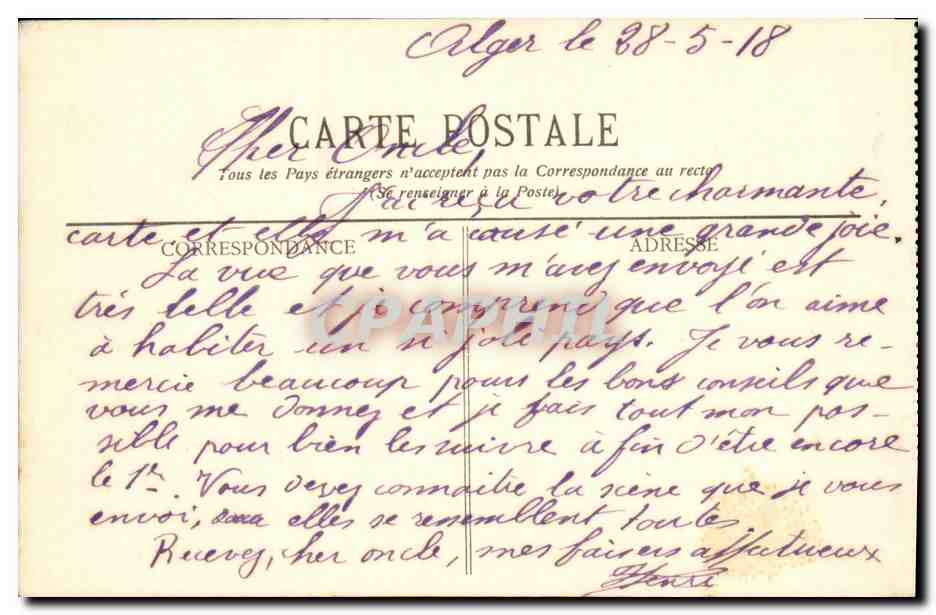 Alger le 28-5-18
CARTE POSTALE
Cher Oncle,
Tous les Pays étrangers n'acceptent pas la Correspondance au recto
(Se renseigner à la Poste)
J'ai reçu votre charmante
carte et elle m'a causé une grande joie.
CORRESPONDANCE
ADRESSE
La vue que vous m'avez envoyé est
très belle et je comprend que l'on aime
CPAPHIL
à habiter un si joli pays. Je vous re-
mercie beaucoup pour les bons conseils que
vous me donnez et je fais tout mon pos-
sible pour bien les suivre à fin d'être encore
le 1er. Vous devez connaitre la scène que je vous
envoi, elles se ressemblent toutes
Recevez, cher oncle, mes baisers affectueux
Henri